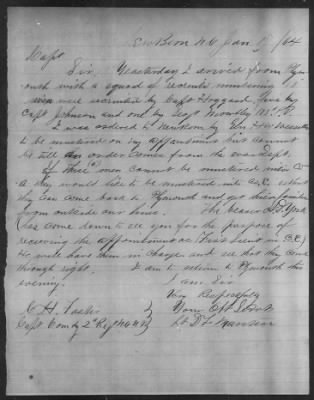 Newbern N.C. Jan /64
Capt
Sir, Yeasterday I arived from Plym
outh with a squad of recruits numbering
were recruited by Capt Hoggard, five by
Capt Johnson and one by Capt
I was ordered to Newbern by
to be mustered on my appointment but cannot
be till an order comes from the war dept.
If these men cannot be mustered into Co
A they would like to be mustered into Co E, so that
they can come back to Plymouth and get their families
from outside our lines. The bearer
has come down to see you for the purpose of
receiving the appointment as First Lieut in Co E
He will have them in charge and see that they come
through right. I am to return to Plymouth this
evening.
I am Sir
Very Respectfully
Your Obt Servt
C H Foster
Capt Comdg 2d Regt N C V